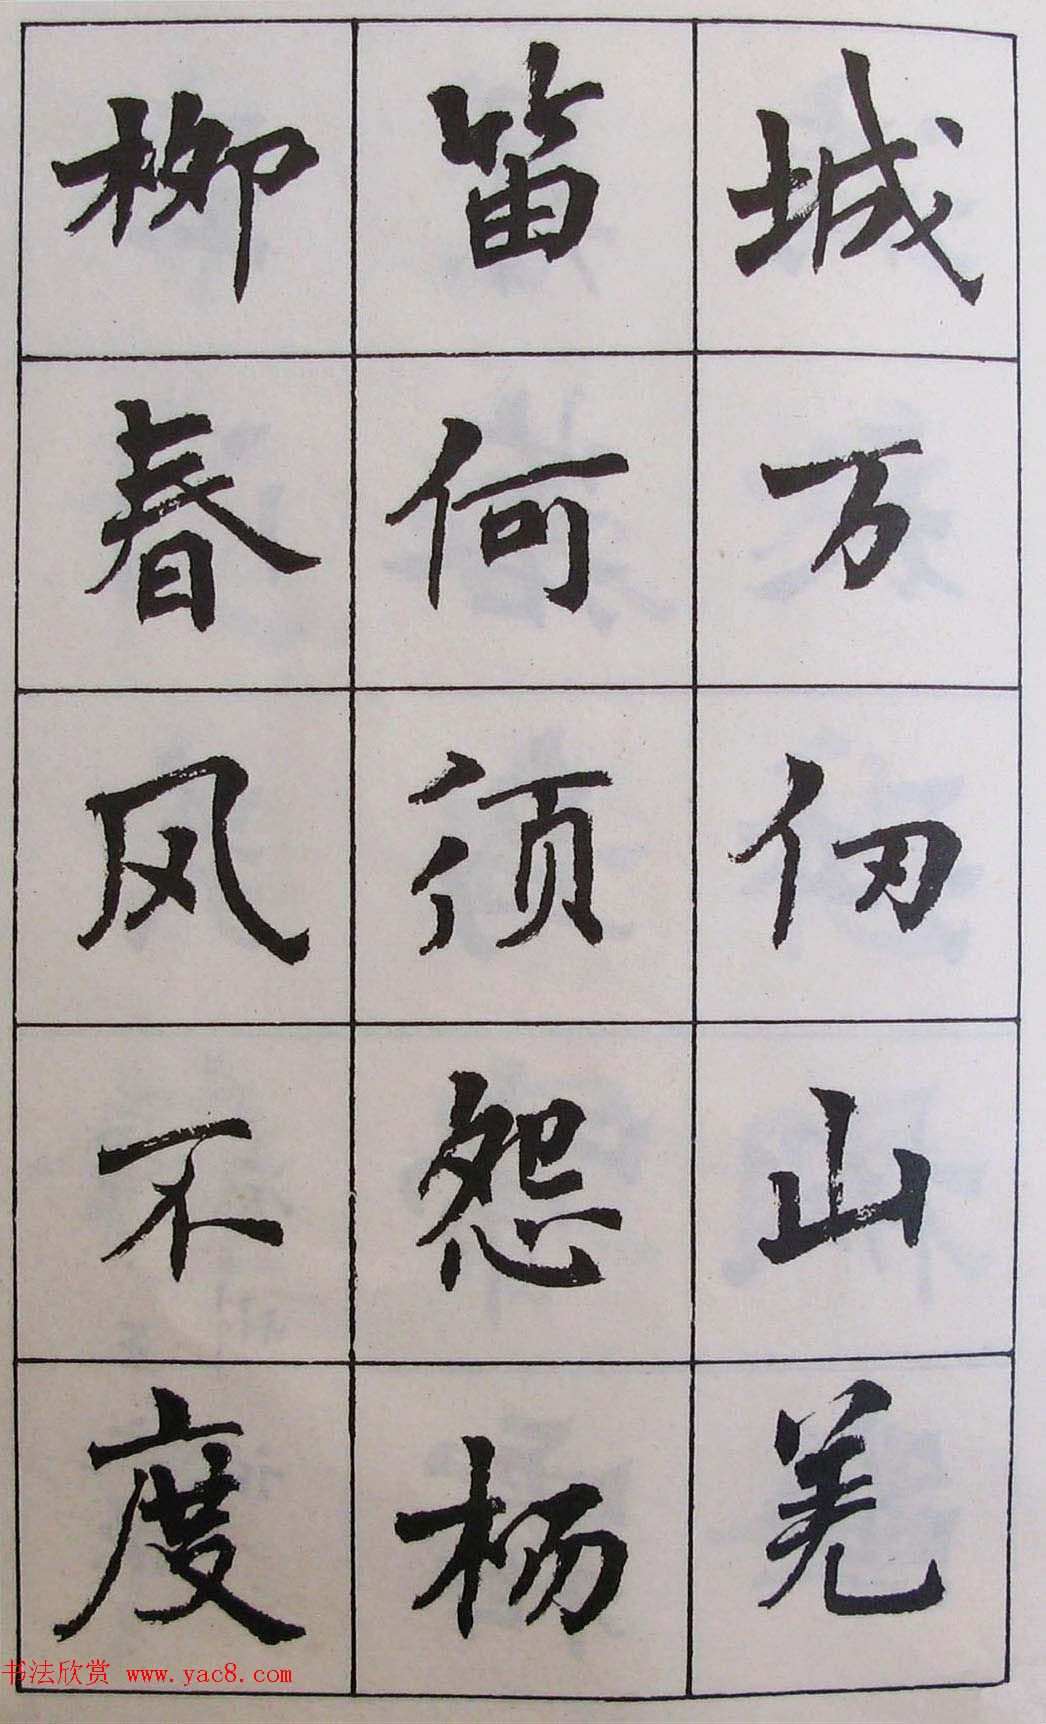 城万仞山羌
笛何须怨杨
柳春风不度
书法欣赏 www.yac8.com